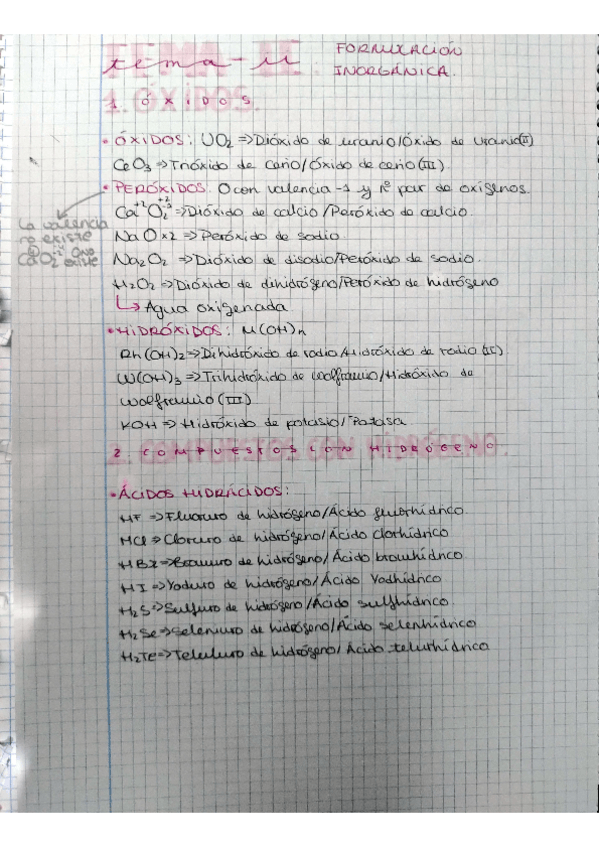 TEMA II
tema-ii
FORMULACIÓN
INORGÁNICA.
1. ÓXIDOS.
• ÓXIDOS: UO2 => Dióxido de uranio/Óxido de uranio(II)
CeO3 => Trióxido de cerio/Óxido de cerio (III).
• PERÓXIDOS. O con valencia -1 y nº par de oxígenos.
Ca+2O2 => Dióxido de calcio/Peróxido de calcio.
La valencia
no existe
NaO×2 => Peróxido de sodio.
CaO2 existe
Na2O2 => Dióxido de disodio/Peróxido de sodio.
H2O2 => Dióxido de dihidrógeno/Peróxido de hidrógeno
↳ Agua oxigenada
• HIDRÓXIDOS: M(OH)n
Rn(OH)2 => Dihidróxido de radio/Hidróxido de radio (II).
W(OH)3 => Trihidróxido de wolframio/Hidróxido de
wolframio (III)
KOH => Hidróxido de potasio/Potasa
2. COMPUESTOS CON HIDRÓGENO.
• ÁCIDOS HIDRÁCIDOS:
HF => Fluoruro de hidrógeno/Ácido fluorhídrico.
HCl => Cloruro de hidrógeno/Ácido clorhídrico
HBr => Bromuro de hidrógeno/Ácido bromhídrico
HI => Yoduro de hidrógeno/Ácido Yodhídrico
H2S => Sulfuro de hidrógeno/Ácido sulfhídrico.
H2Se => Seleniuro de hidrógeno/Ácido selenhídrico
H2Te => Teluluro de hidrógeno/Ácido telurhídrico